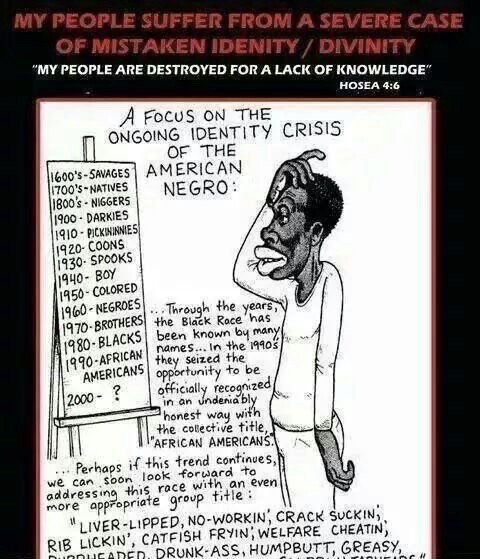 MY PEOPLE SUFFER FROM A SEVERE CASE
OF MISTAKEN IDENITY / DIVINITY
"MY PEOPLE ARE DESTROYED FOR A LACK OF KNOWLEDGE"
HOSEA 4:6
A FOCUS ON THE
ONGOING IDENTITY CRISIS
OF THE
AMERICAN
NEGRO:
1600'S-SAVAGES
1700'S-NATIVES
1800'S - NIGGERS
1900 - DARKIES
1910 - PICKININNIES
1920- COONS
1930- SPOOKS
1940- BOY
1950- COLORED
1960- NEGROES
1970-BROTHERS
1980-BLACKS
1990-AFRICAN
AMERICANS
2000 - ?
...Through the years,
the Black Race has
been known by many
names... In the 1990s
they seized the
opportunity to be
officially recognized
in an undeniably
honest way with
the collective title,
"AFRICAN AMERICANS."
... Perhaps if this trend continues,
we can soon look forward to
addressing this race with an even
more appropriate group title:
"LIVER-LIPPED, NO-WORKIN', CRACK SUCKIN',
RIB LICKIN', CATFISH FRYIN', WELFARE CHEATIN',
DRUNK-ASS, HUMPBUTT, GREASY,